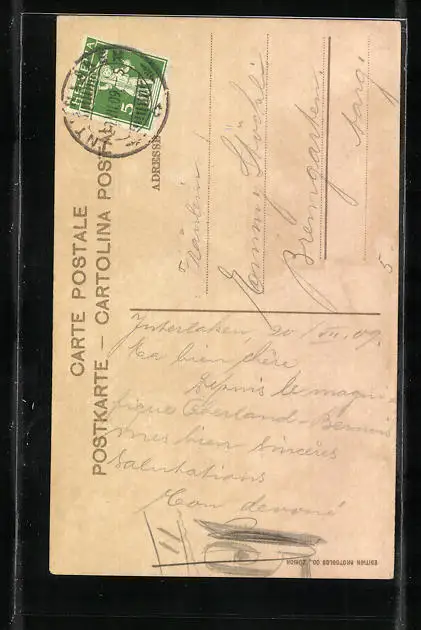 CARTE POSTALE
POSTKARTE — CARTOLINA POSTALE
HELVETIA
5
ADRESSE
Fräulein
Emmy
Bremgarten
Aarg.
5.-
Interlaken, 20/VII.09.
Ma bien chère
Depuis le magni-
fique Oberland-Bernois
mes bien sincères
salutations
Ton dévoué
EDITION PHOTOGLOB CO., ZÜRICH